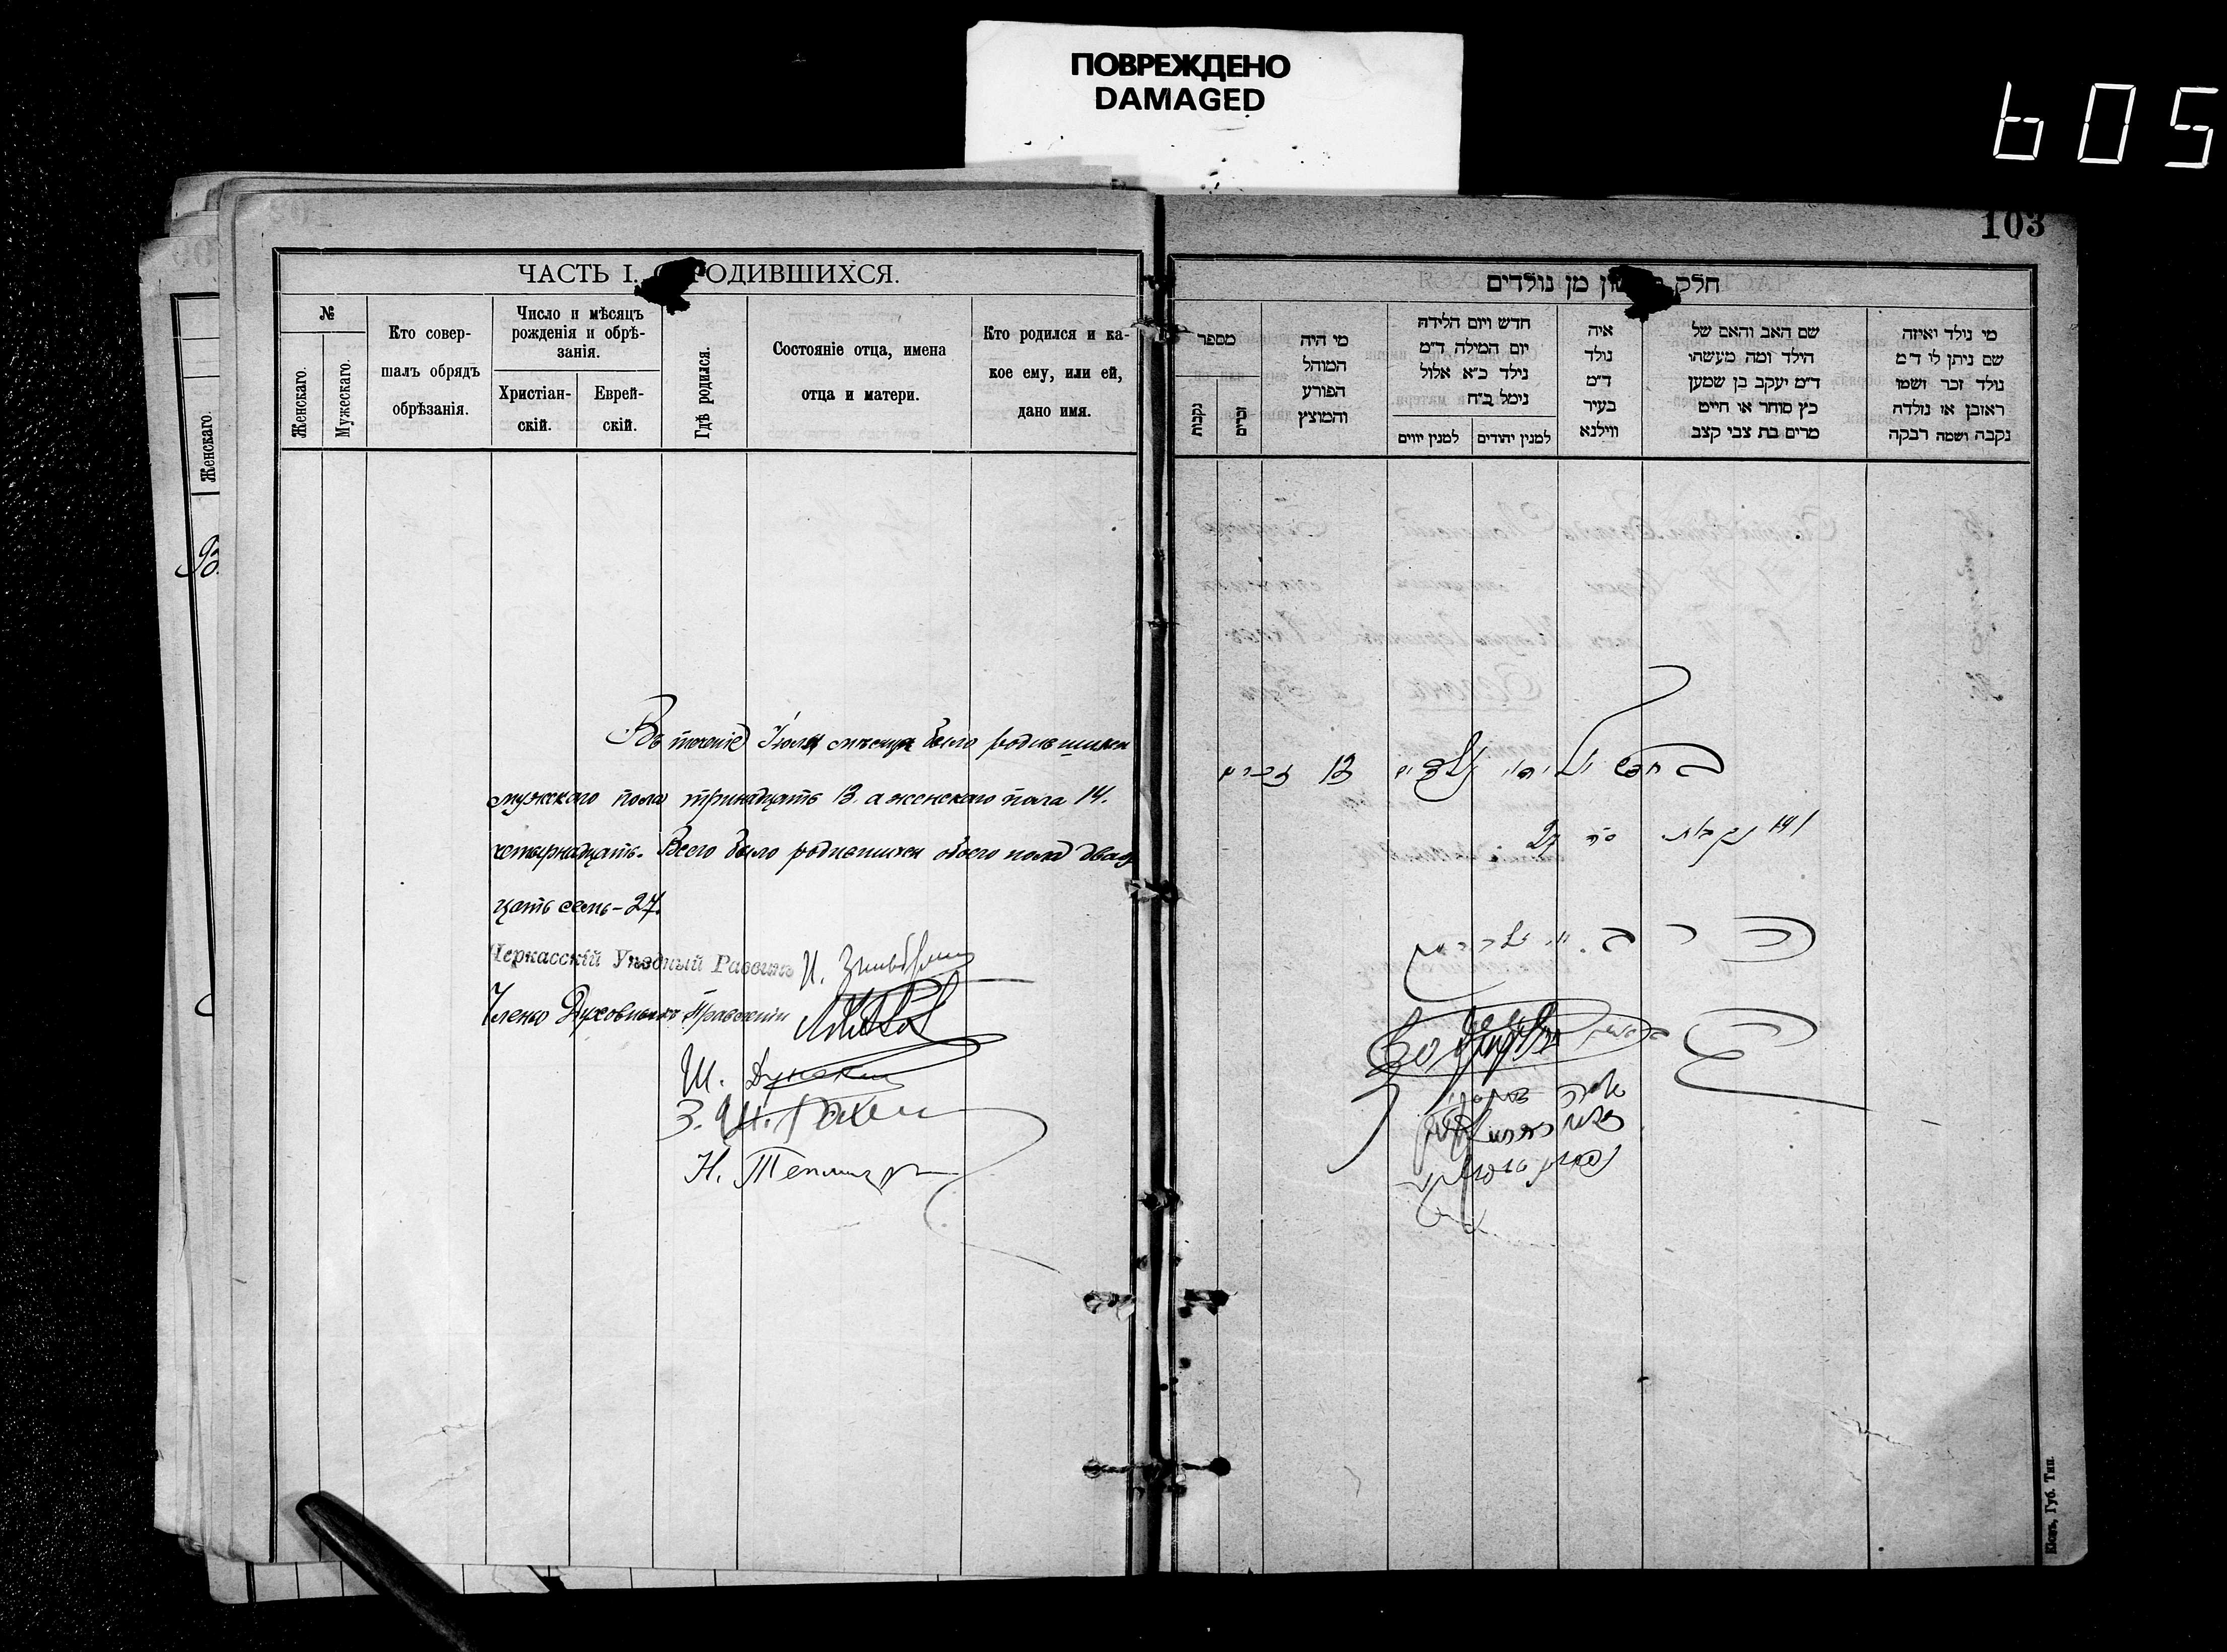 ПОВРЕЖДЕНО
DAMAGED
605
103
ЧАСТЬ I. РОДИВШИХСЯ.
№
Женскаго.
Мужескаго.
Кто совер-
шалъ обрядъ
обрѣзанія.
Число и мѣсяцъ
рожденія и обрѣ-
занія.
Христіан-
скій.
Еврей-
скій.
Гдѣ родился.
Состояніе отца, имена
отца и матери.
Кто родился и ка-
кое ему, или ей,
дано имя.
Женскаго.
Въ теченіе Іюля мѣсяца было родившихся
мужескаго пола тринадцать 13. а женскаго пола 14.
четырнадцать. Всего было родившихся обоего пола двад
цать семь - 27.
Черкасскій Уѣздный Раввинъ И.
Члены Духовнаго Правленія
Ш. Дунский
З.
Н. Теплицкий
חלק מן נולדים
מספר
נקבות
זכרים
מי היה
המוהל
הפורע
והמוצץ
חדש ויום הלידה
יום המילה ד״מ
נילד כ״א אלול
נימל ב״ח
למנין יווים
למנין יהודים
איה
נולד
ד״מ
בעיר
ווילנא
שם האב והאם של
הילד ומה מעשהו
ד״מ יעקב בן שמען
כץ סוחר או חייט
מרים בת צבי קצב
מי נולד ואיזה
שם ניתן לו ד״מ
נולד זכר ושמו
ראובן או נולדה
נקבה ושמה רבקה
בחדש יולי נולדים 13 זכרים
14 נקבות ס״ה 27
הרב
Кіевъ, Губ. Тип.